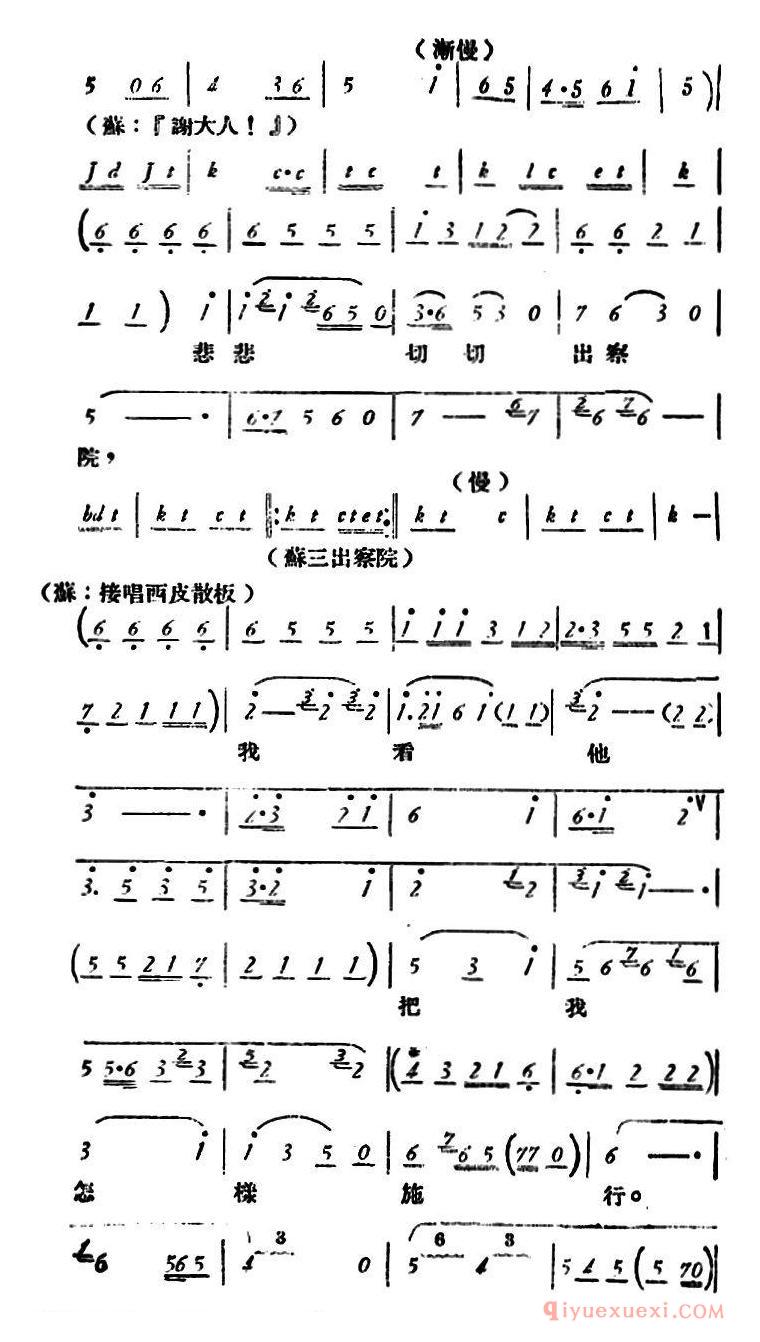 （漸慢）
5 06 | 4 36 | 5 i | 65 | 4·5 6i | 5)|
（蘇：『謝大人！』）
Jd Jt | k c·c | tc t | k lc et | k
(6 6 6 6 | 6 5 5 5 | i 3 122 | 6 6 2 1 |
1 1) i | i 2i 2 650 | 3·6 53 0 | 7 6 3 0 |
悲 悲 切 切 出 察
5 — · | 6·7 5 6 0 | 7 — 67 | 26 76 — |
院，
（慢）
bdt | kt ct ‖: kt ctet :‖ kt c | kt ct | k — |
（蘇三出察院）
（蘇：接唱西皮散板）
(6 6 6 6 | 6 5 5 5 | i ii 3 12 | 2·3 55 2 1 |
7 2 1 11) | 2 — 32 32 | i.2i 6 i (11) | 32 — — (22)
我 看 他
3 — · | 2·3 2i | 6 i | 6·i 2V |
3. 5 3 5 | 3·2 i | 2 12 | 3i 2i — ·
(5 5 21 7 | 2 1 1 1) | 5 3 i | 5 6 76 16 |
把 我
5 5·6 3 23 | 52 32 |(4 3 21 6 | 6·1 2 22)|
3 i | i 3 5 0 | 6 765 (77 0) | 6 — · |
怎 樣 施 行。
16 565 | 4 3 0 | 5 6 4 3 | 5 4 5 (5 70)|
qiyuexuexi.com